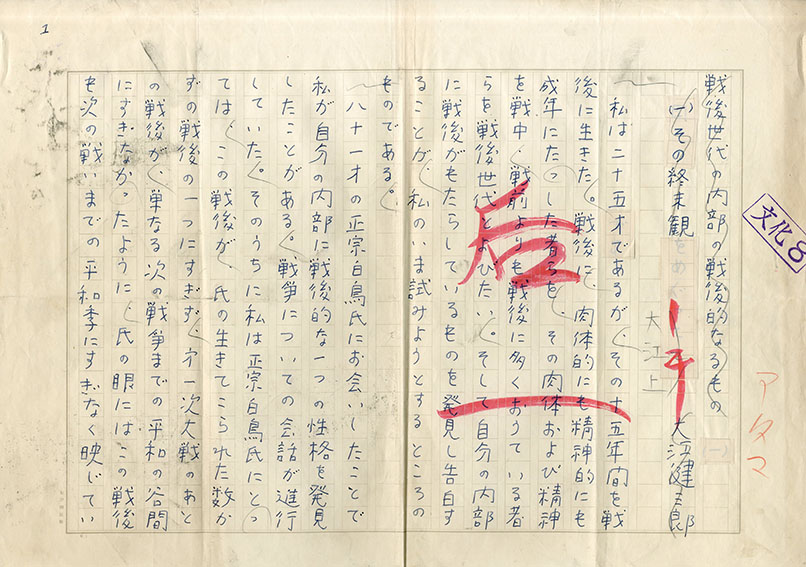 1
文化8
アタマ
戦後世代の内部の戦後的なるもの (一)
(一)その終末観をめ
大江健三郎
大江上
后
私は二十五才であるが、その十五年間を戦
後に生きた。戦後に、肉体的にも精神的にも
成年にたっした者らを、その肉体および精神
を戦中・戦前よりも戦後に多くおうている者
らを戦後世代とよびたい。そして自分の内部
に戦後がもたらしているものを発見し告白す
ることが、私のいま試みようとするところの
ものである。
八十一才の正宗白鳥氏にお会いしたことで
私が自分の内部に戦後的な一つの性格を発見
したことがある。戦争についての会話が進行
していた。そのうちに私は正宗白鳥氏にとっ
ては、この戦後が、氏の生きてこられた数か
ずの戦後の一つにすぎず、才一次大戦のあと
の戦後が、単なる次の戦争までの平和の谷間
にすぎなかったように、氏の眼にはこの戦後
も次の戦いまでの平和季にすぎなく映じてい